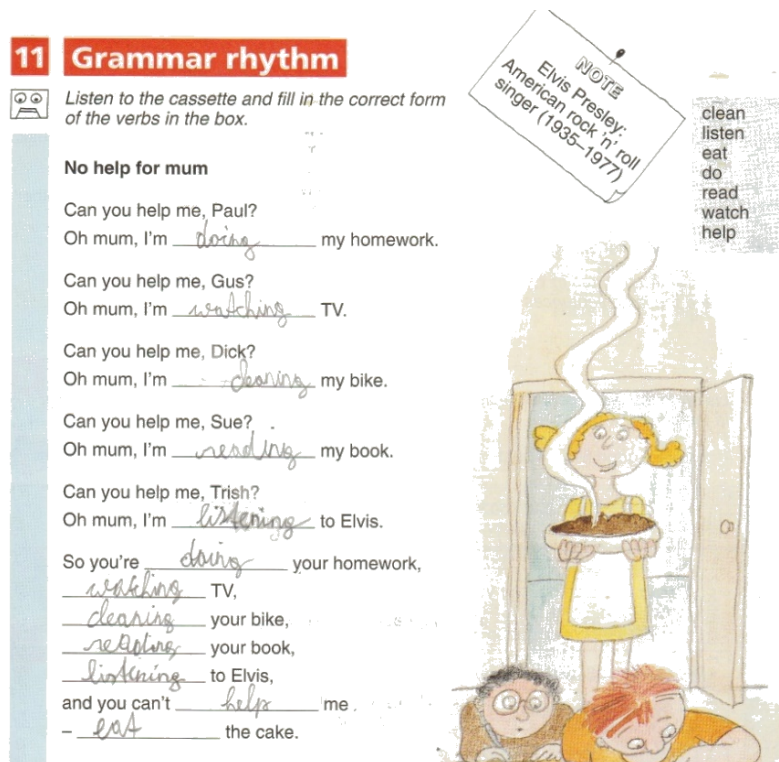 11 Grammar rhythm
Listen to the cassette and fill in the correct form
of the verbs in the box.
NOTE
Elvis Presley:
American rock 'n' roll
singer (1935–1977)
clean
listen
eat
do
read
watch
help
No help for mum
Can you help me, Paul?
Oh mum, I'm doing my homework.
Can you help me, Gus?
Oh mum, I'm watching TV.
Can you help me, Dick?
Oh mum, I'm cleaning my bike.
Can you help me, Sue?
Oh mum, I'm reading my book.
Can you help me, Trish?
Oh mum, I'm listening to Elvis.
So you're doing your homework,
watching TV,
cleaning your bike,
reading your book,
listening to Elvis,
and you can't help me
– eat the cake.